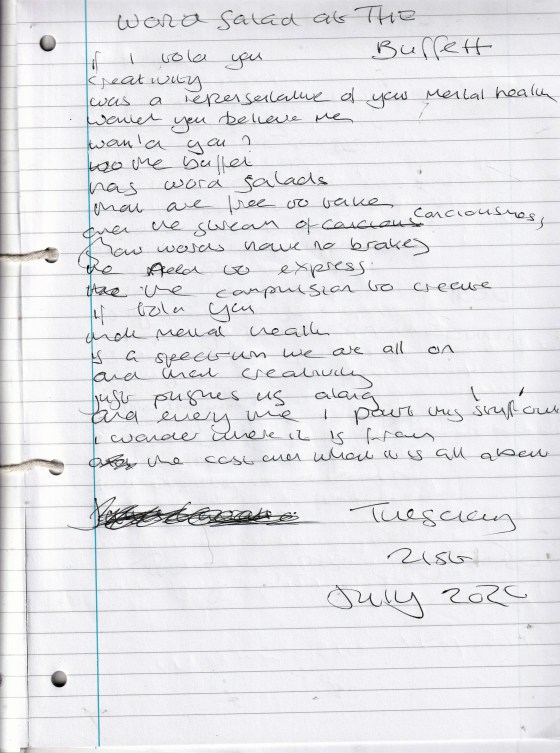 word salad at THE
Buffett
if i told you
creativity
was a representative of your mental health
would you believe me
would you?
the buffet
has word salads
that are free to take
and the stream of conciousness
how words have no brakes
the need to express
the compulsion to create
if told you
that mental health
is a spectrum we are all on
and that creativity
just pushes us along
and every time i pour my stuff out
i wonder where it is from
the cost and what it is all about
Tuesday
21st
July 202